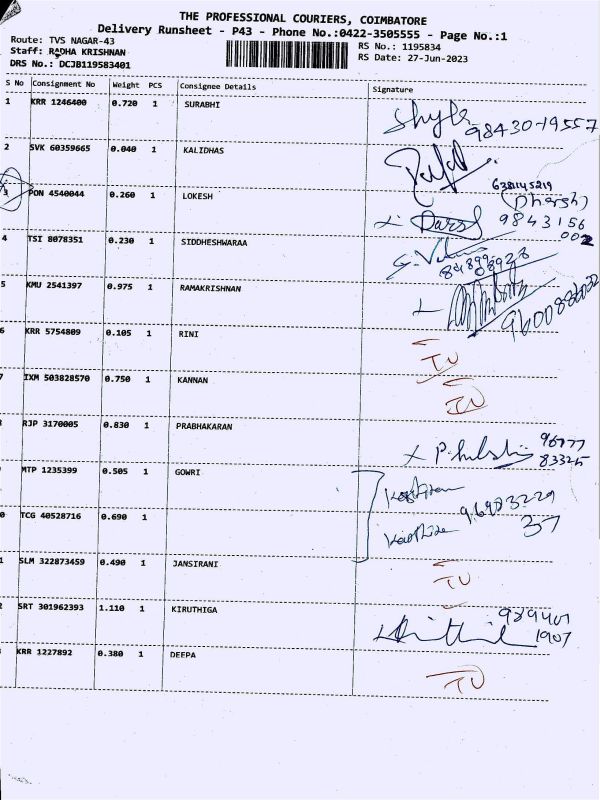 THE PROFESSIONAL COURIERS, COIMBATORE
Delivery Runsheet - P43 - Phone No.:0422-3505555 - Page No.:1
Route: TVS NAGAR-43
RS No.: 1195834
Staff: RADHA KRISHNAN
RS Date: 27-Jun-2023
DRS No.: DCJB119583401
S No Consignment No Weight PCS Consignee Details Signature
1 KRR 1246400 0.720 1 SURABHI
98430-19557
2 SVK 60359665 0.040 1 KALIDHAS
3 PON 4540044 0.260 1 LOKESH
6381145219
9843156
002
4 TSI 8078351 0.230 1 SIDDHESHWARAA
5 KMU 2541397 0.975 1 RAMAKRISHNAN
6 KRR 5754809 0.105 1 RINI
7 IXM 503828570 0.750 1 KANNAN
8 RJP 3170005 0.830 1 PRABHAKARAN
83325
MTP 1235399 0.505 1 GOWRI
0 TCG 40528716 0.690 1
37
1 SLM 322873459 0.490 1 JANSIRANI
2 SRT 301962393 1.110 1 KIRUTHIGA
1907
KRR 1227892 0.380 1 DEEPA